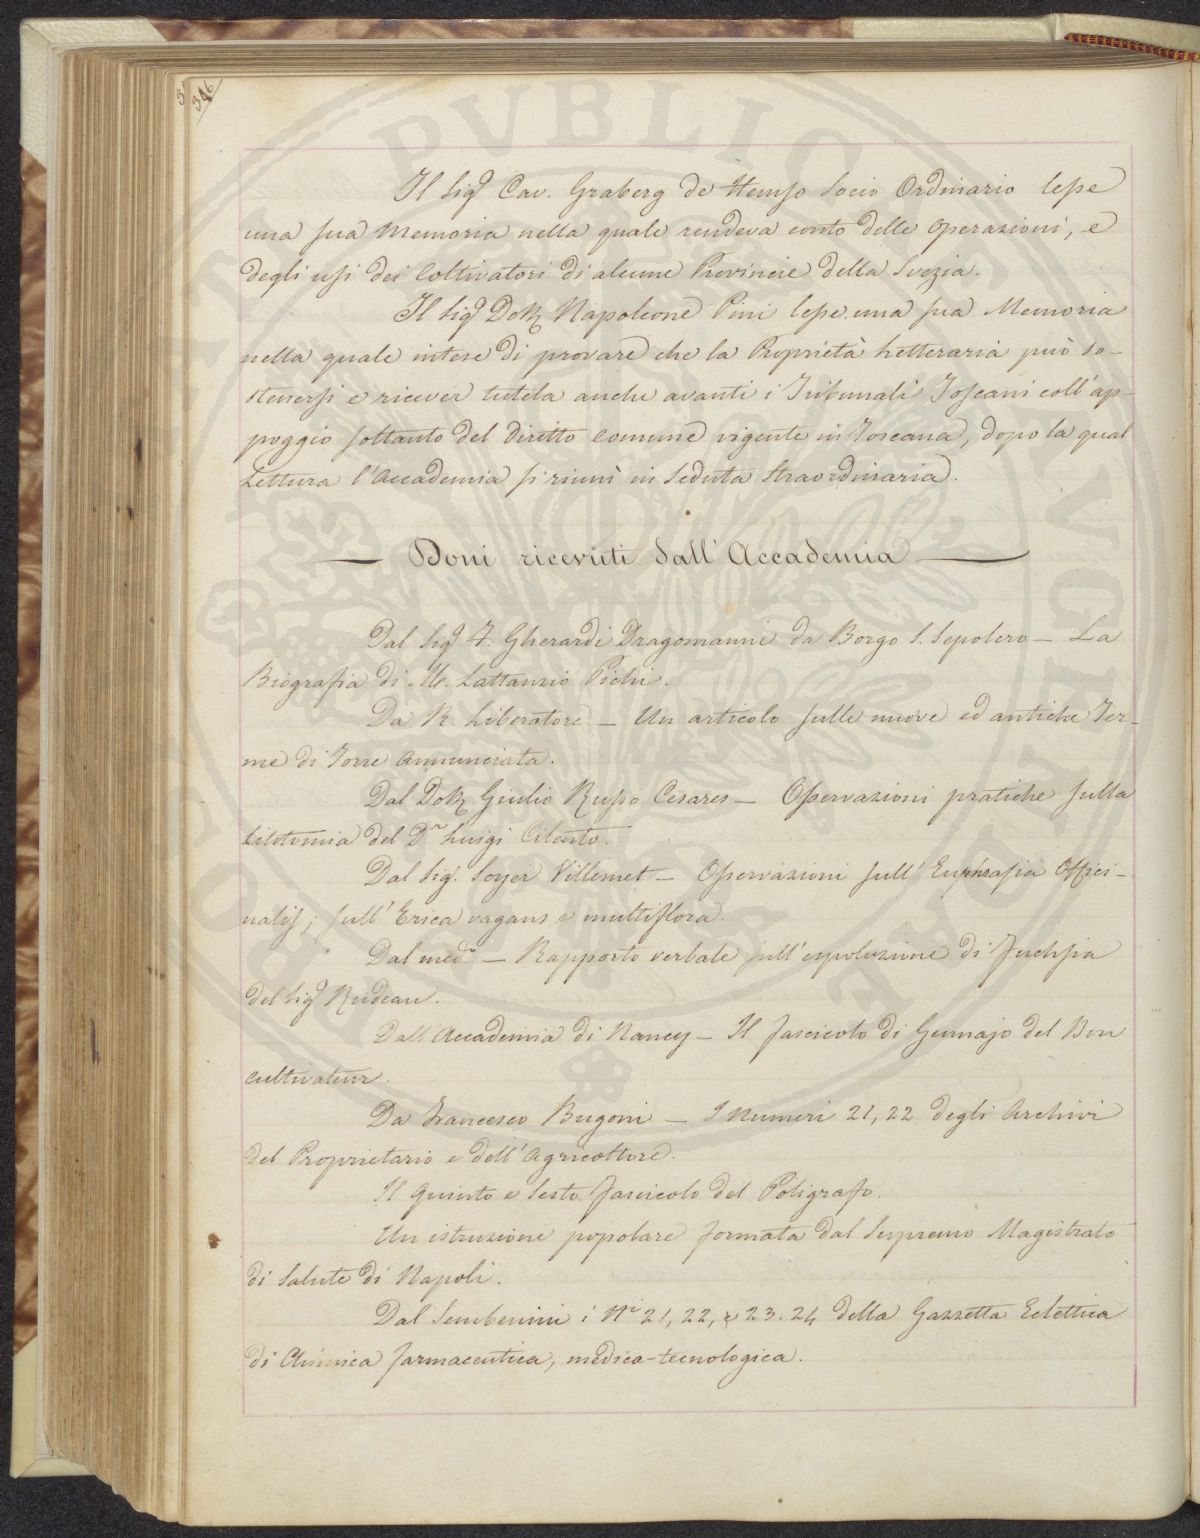 346
Il Sigr Cav. Graberg de Hemso Socio Ordinario lesse
una sua Memoria nella quale rendeva conto delle operazioni, e
degli usi dei Coltivatori di alcune Provincie della Svezia.
Il Sigr Dott Napoleone Pini lesse una sua Memoria
nella quale intese di provare che la Proprietà Letteraria può so-
stenersi e ricever tutela anche avanti i Tribunali Toscani coll'ap-
poggio soltanto del Diritto Comune vigente in Toscana, dopo la qual
Lettura l'Accademia si riunì in Seduta Straordinaria.
— Doni ricevuti dall'Accademia —
Dal Sigr F. Gherardi Dragomanni da Borgo S. Sepolcro — La
Biografia di M. Lattanzio Pichi.
Da R. Liberatore — Un articolo sulle nuove ed antiche Ter-
me di Torre Annunciata.
Dal Dott Giulio Russo Cesares — Osservazioni pratiche sulla
Litotomia del Dr Luigi Cilento.
Dal Sigr. Soyer Villemet — Osservazioni sull'Eufrasia Offici-
nalis; sull'Erica vagans e multiflora.
Dal medo — Rapporto verbale sull'esposizione di Fuchsia
del Sigr Rudeau.
Dall'Accademia di Nancy — Il fascicolo di Gennajo del Bon
cultivateur.
Da Francesco Bugoni — I Numeri 21, 22 degli Archivi
del Proprietario e dell'Agricoltore.
Il quinto e Sesto fascicolo del Poligrafo.
Un istruzione popolare formata dal Supremo Magistrato
di Salute di Napoli.
Dal Sembenini i Ni 21, 22, e 23. 24 della Gazzetta Eclettica
di Chimica farmaceutica, medica-tecnologica.